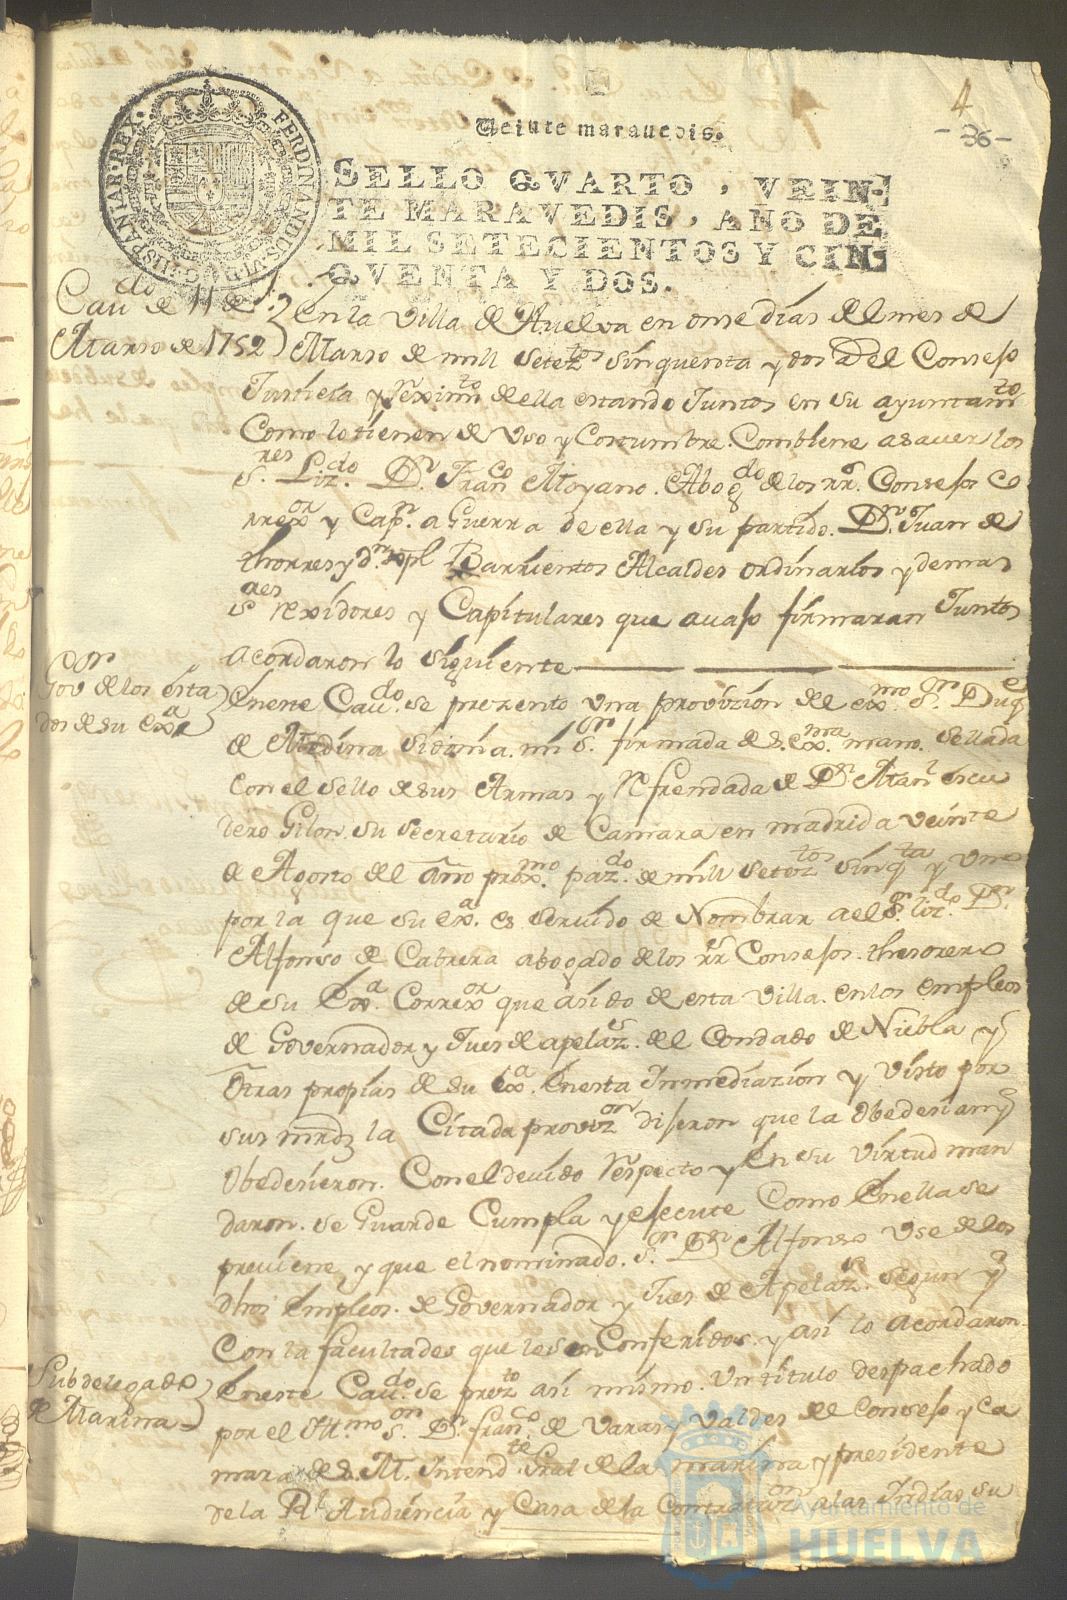 4
-36-
Veinte maravedis.
SELLO QVARTO, VEIN-
TE MARAVEDIS, AÑO DE
MIL SETECIENTOS Y CIN-
QVENTA Y DOS.
FERDINANDUS VI D G HISPANIAR REX
Caudo de 11 de
Marso de 1752
En la Villa de Huelva en onse dias del mes de
Marso de mill seteztos sinquenta y dos a el Consejo
Justicia y reximto de ella estando Juntos en su ayuntamto
Como lo tienen de Uso y Costumbre. Combiene a saver los
Sres Lizdo Dn Franco Moyano. Abogdo de los rrs. Consejos Co
rrexor y Capn a Guerra de ella y su partido. Dn Juan de
thorres y dn Barrientos Alcaldes ordinarios y demas
Sres rexidores y Capitulares que avajo firmaran Juntos
acordaron lo siguiente
Gor de los esta
dos de su exa
Eneste Caudo se prezento una provizion de el exmo Sor Duqe
de Medina Sidonia mi Sor firmada de s. exma mano. Sellada
con el sello de sus Armas y Refrendada de Dn Manl escu
dero Gilon. su secretario de Camara en madrid a veinte
de Agosto del año proxmo pazdo de mill setezs tos sinqta y uno
por la que su exa es servido de Nombrar a el Sor lizdo Dn
Alfonso de Cabrera abogado de los rrs Consejos. thesorero
de su Exa Correxor que a sido de esta villa. en los empleos
de Governador y Jues de apelazs de el Condado de Niebla y
otras propias de su exa Enesta Inmediazion y visto por
sus mrdz la Citada provizon dijeron que la obedesian y
obedesieron. Con el devido Respecto y En su virtud man
daron. se Guarde Cumpla y ejecute Como Enella se
previene y que el nominado. Sor Dn Alfonso use de los
dhos Empleos. de Governador y Jues de Apelazs segun y
Con la facultades que le son Conferidos y asi lo acordaron
Subdelegado
de Marina
Eneste Caudo se prezto asi mismo. Un titulo despachado
por el Dn Franco de Varas y Valdes de el Consejo y Ca
mara de S. M. Intendte Gral de la marina y presidente
de la Rl Audiencia y Casa de la Contratazon a las Indias su
Ayuntamiento de
HUELVA